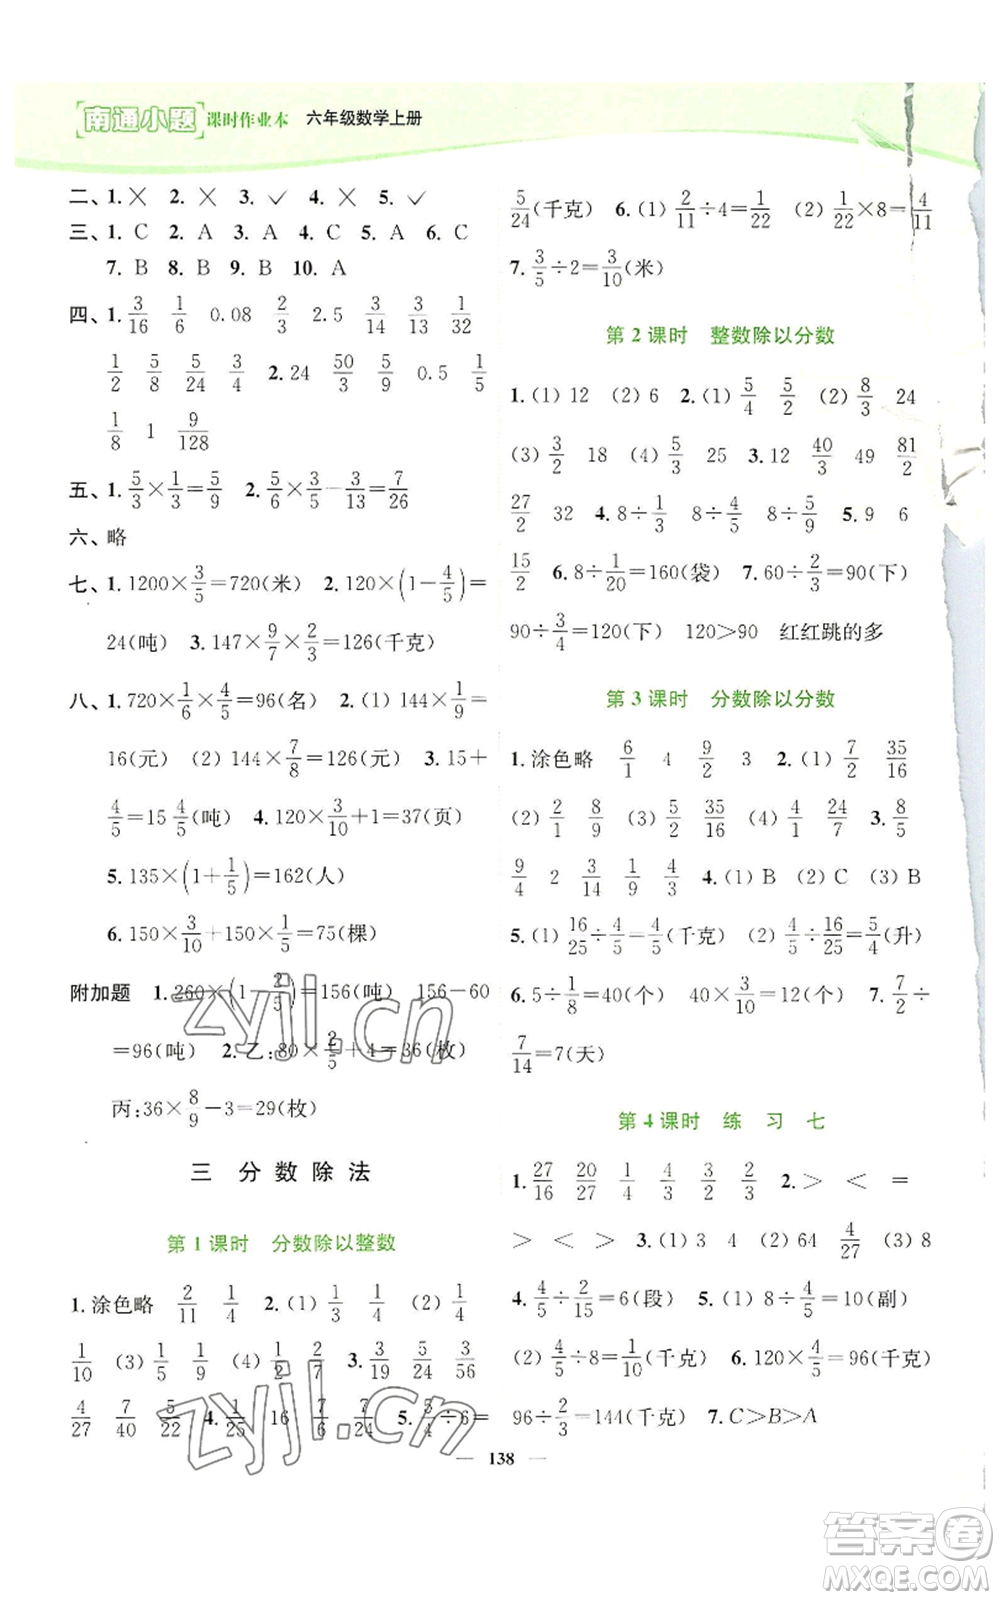 南通小题 课时作业本 六年级数学上册
二、1. × 2. × 3. ✓ 4. × 5. ✓
三、1. C 2. A 3. A 4. C 5. A 6. C
7. B 8. B 9. B 10. A
四、1. 3/16 1/6 0.08 2/3 2.5 3/14 3/13 1/32
1/2 5/8 5/24 3/4 2. 24 50/3 5/9 0.5 1/5
1/8 1 9/128
五、1. 5/3×1/3=5/9 2. 5/6×3/5-3/13=7/26
六、略
七、1. 1200×3/5=720(米) 2. 120×(1-4/5)=
24(吨) 3. 147×9/7×2/3=126(千克)
八、1. 720×1/6×4/5=96(名) 2. (1) 144×1/9=
16(元) (2) 144×7/8=126(元) 3. 15+
4/5=15 4/5(吨) 4. 120×3/10+1=37(页)
5. 135×(1+1/5)=162(人)
6. 150×3/10+150×1/5=75(棵)
附加题 1. 260×(1-2/5)=156(吨) 156-60
=96(吨) 2. 乙:80×2/5+4=36(枚)
丙:36×8/9-3=29(枚)
三 分数除法
第1课时 分数除以整数
1. 涂色略 2/11 1/4 2. (1) 1/3 1/4 (2) 1/4
1/10 (3) 1/5 1/9 (4) 1/2 2/7 3. 3/19 5/24 3/56
4/27 7/40 5/22 4. 1/25 16 7/6 7/6 5. 5/4÷6=
5/24(千克) 6. (1) 2/11÷4=1/22 (2) 1/22×8=4/11
7. 3/5÷2=3/10(米)
第2课时 整数除以分数
1. (1) 12 (2) 6 2. (1) 5/4 5/2 (2) 8/3 24
(3) 3/2 18 (4) 5/3 25 3. 12 40/3 49 81/2
27/2 32 4. 8÷1/3 8÷4/5 8÷5/9 5. 9 6
15/2 6. 8÷1/20=160(袋) 7. 60÷2/3=90(下)
90÷3/4=120(下) 120>90 红红跳的多
第3课时 分数除以分数
1. 涂色略 6/1 4 9/2 3 2. (1) 7/2 35/16
(2) 2/1 8/9 (3) 5/2 35/16 (4) 4/1 24/7 3. 8/5
9/4 2 3/14 1/9 4/3 4. (1) B (2) C (3) B
5. (1) 16/25÷4/5=4/5(千克) (2) 4/5÷16/25=5/4(升)
6. 5÷1/8=40(个) 40×3/10=12(个) 7. 7/2÷
7/14=7(天)
第4课时 练习七
1. 27/16 20/27 1/4 4/3 3/2 2/3 2. > < =
> < > 3. (1) 3 4 (2) 64 4/27 (3) 8
4. 4/5÷2/15=6(段) 5. (1) 8÷4/5=10(副)
(2) 4/5÷8=1/10(千克) 6. 120×4/5=96(千克)
96÷2/3=144(千克) 7. C>B>A
138
zyjl.cn
zyjl.cn
答案卷
MXQE.COM